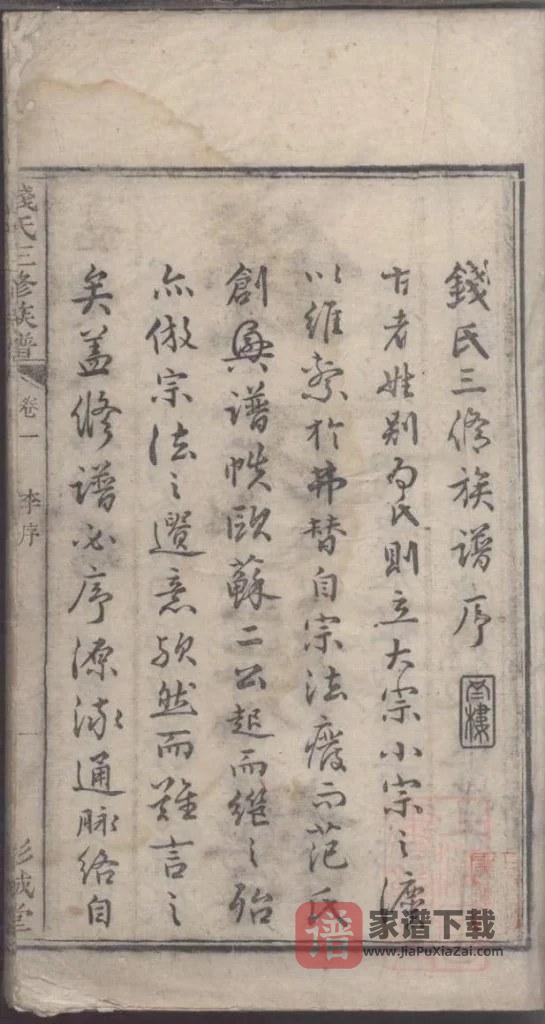 錢氏三脩族譜序
古者姓別而氏則立大宗小宗之法
以維繫於弗替自宗法廢而范氏
創興譜帙歐蘇二公起而繼之殆
亦倣宗法之遺意歟然而難言之
矣盖修譜必序源流通脉絡自
錢氏三修族譜
卷一
李序
一
彭城堂
譜
家谱下载
www.JiaPuXiaZai.com